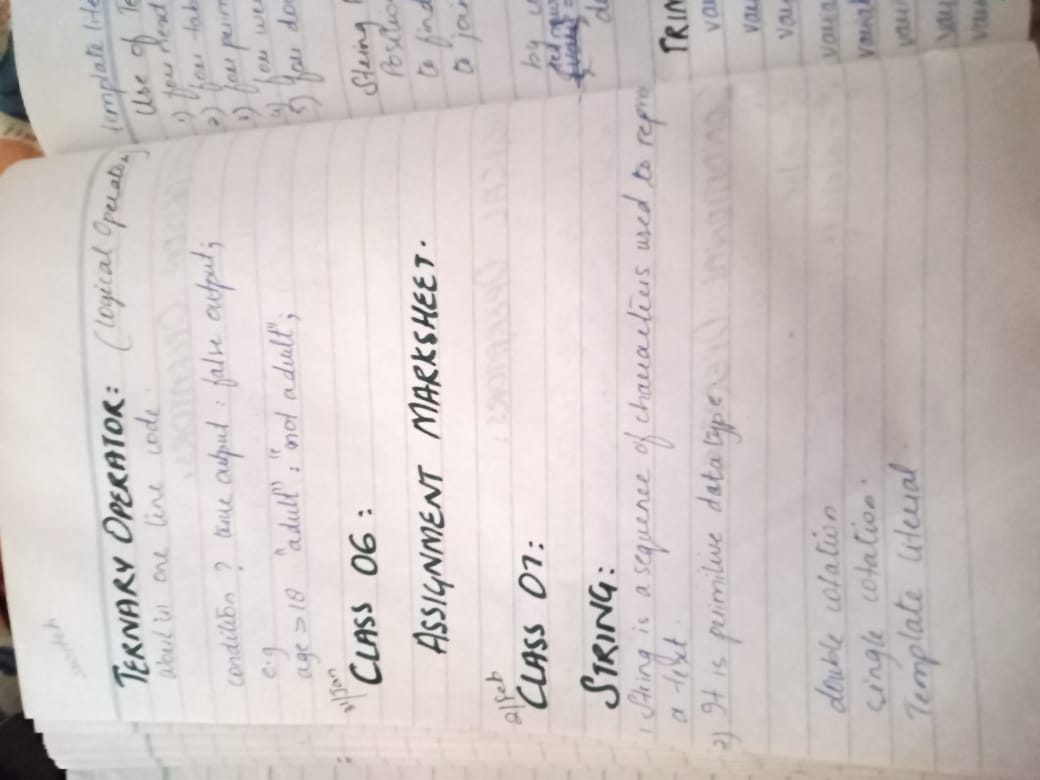 TERNARY OPERATOR: (Logical Operator)
is one line code.
condition ? true output : false output;
e.g
age > 18 "adult" : "not adult";
31/Jan
CLASS 06:
ASSIGNMENT MARKSHEET.
2/Feb
CLASS 07:
STRING:
1 String is a sequence of characters used to repre
a text.
2) It is primitive data type.
double cotation
single cotation.
Template literal
Template lite
Use of Te
1) you need
2) for tab
3) for
4) you
5) you do
String
to find
to join
by
TRIM